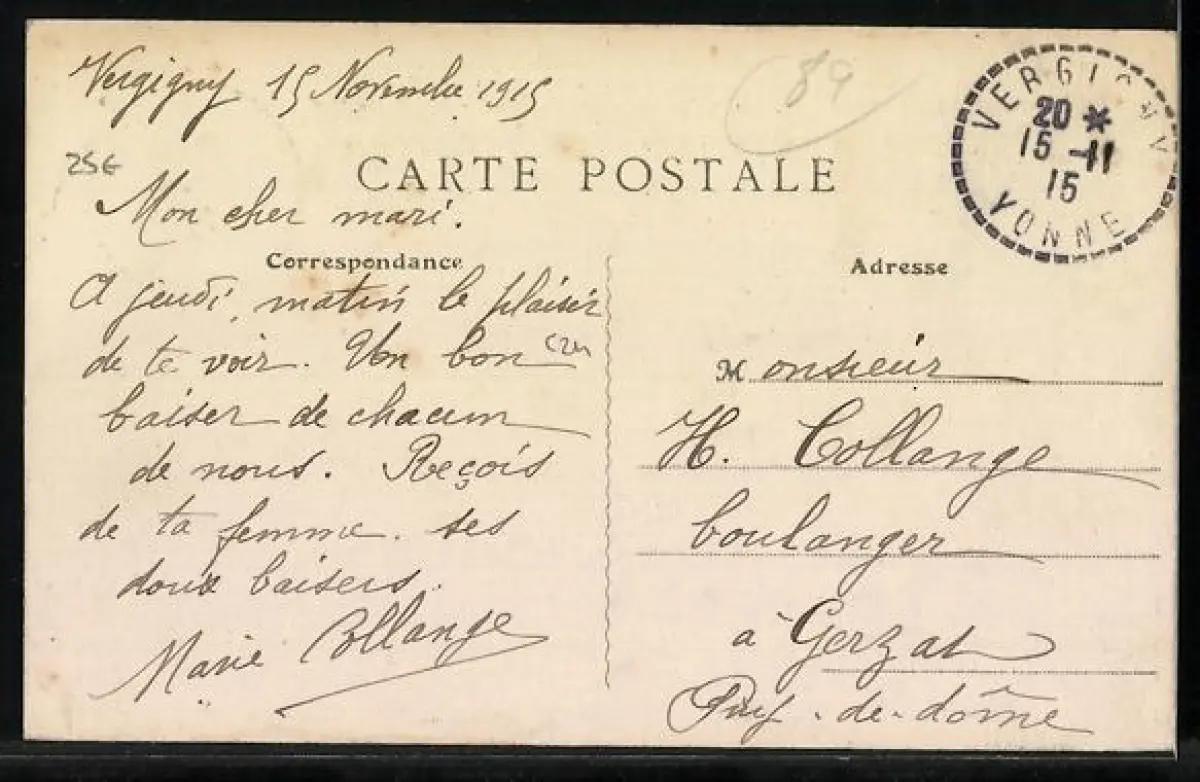 Vergigny 15 Novembre 1915
89
VERGIGNY
20 *
15 -11
15
YONNE
25€
CARTE POSTALE
Mon cher mari.
Correspondance
A jeudi, matin le plaisir
de te voir. Un bon
baiser de chacun
de nous. Reçois
de ta femme. ses
doux baisers.
Marie Collange
Adresse
Monsieur
H. Collange
boulanger
à Gerzat
Puy-de-dôme